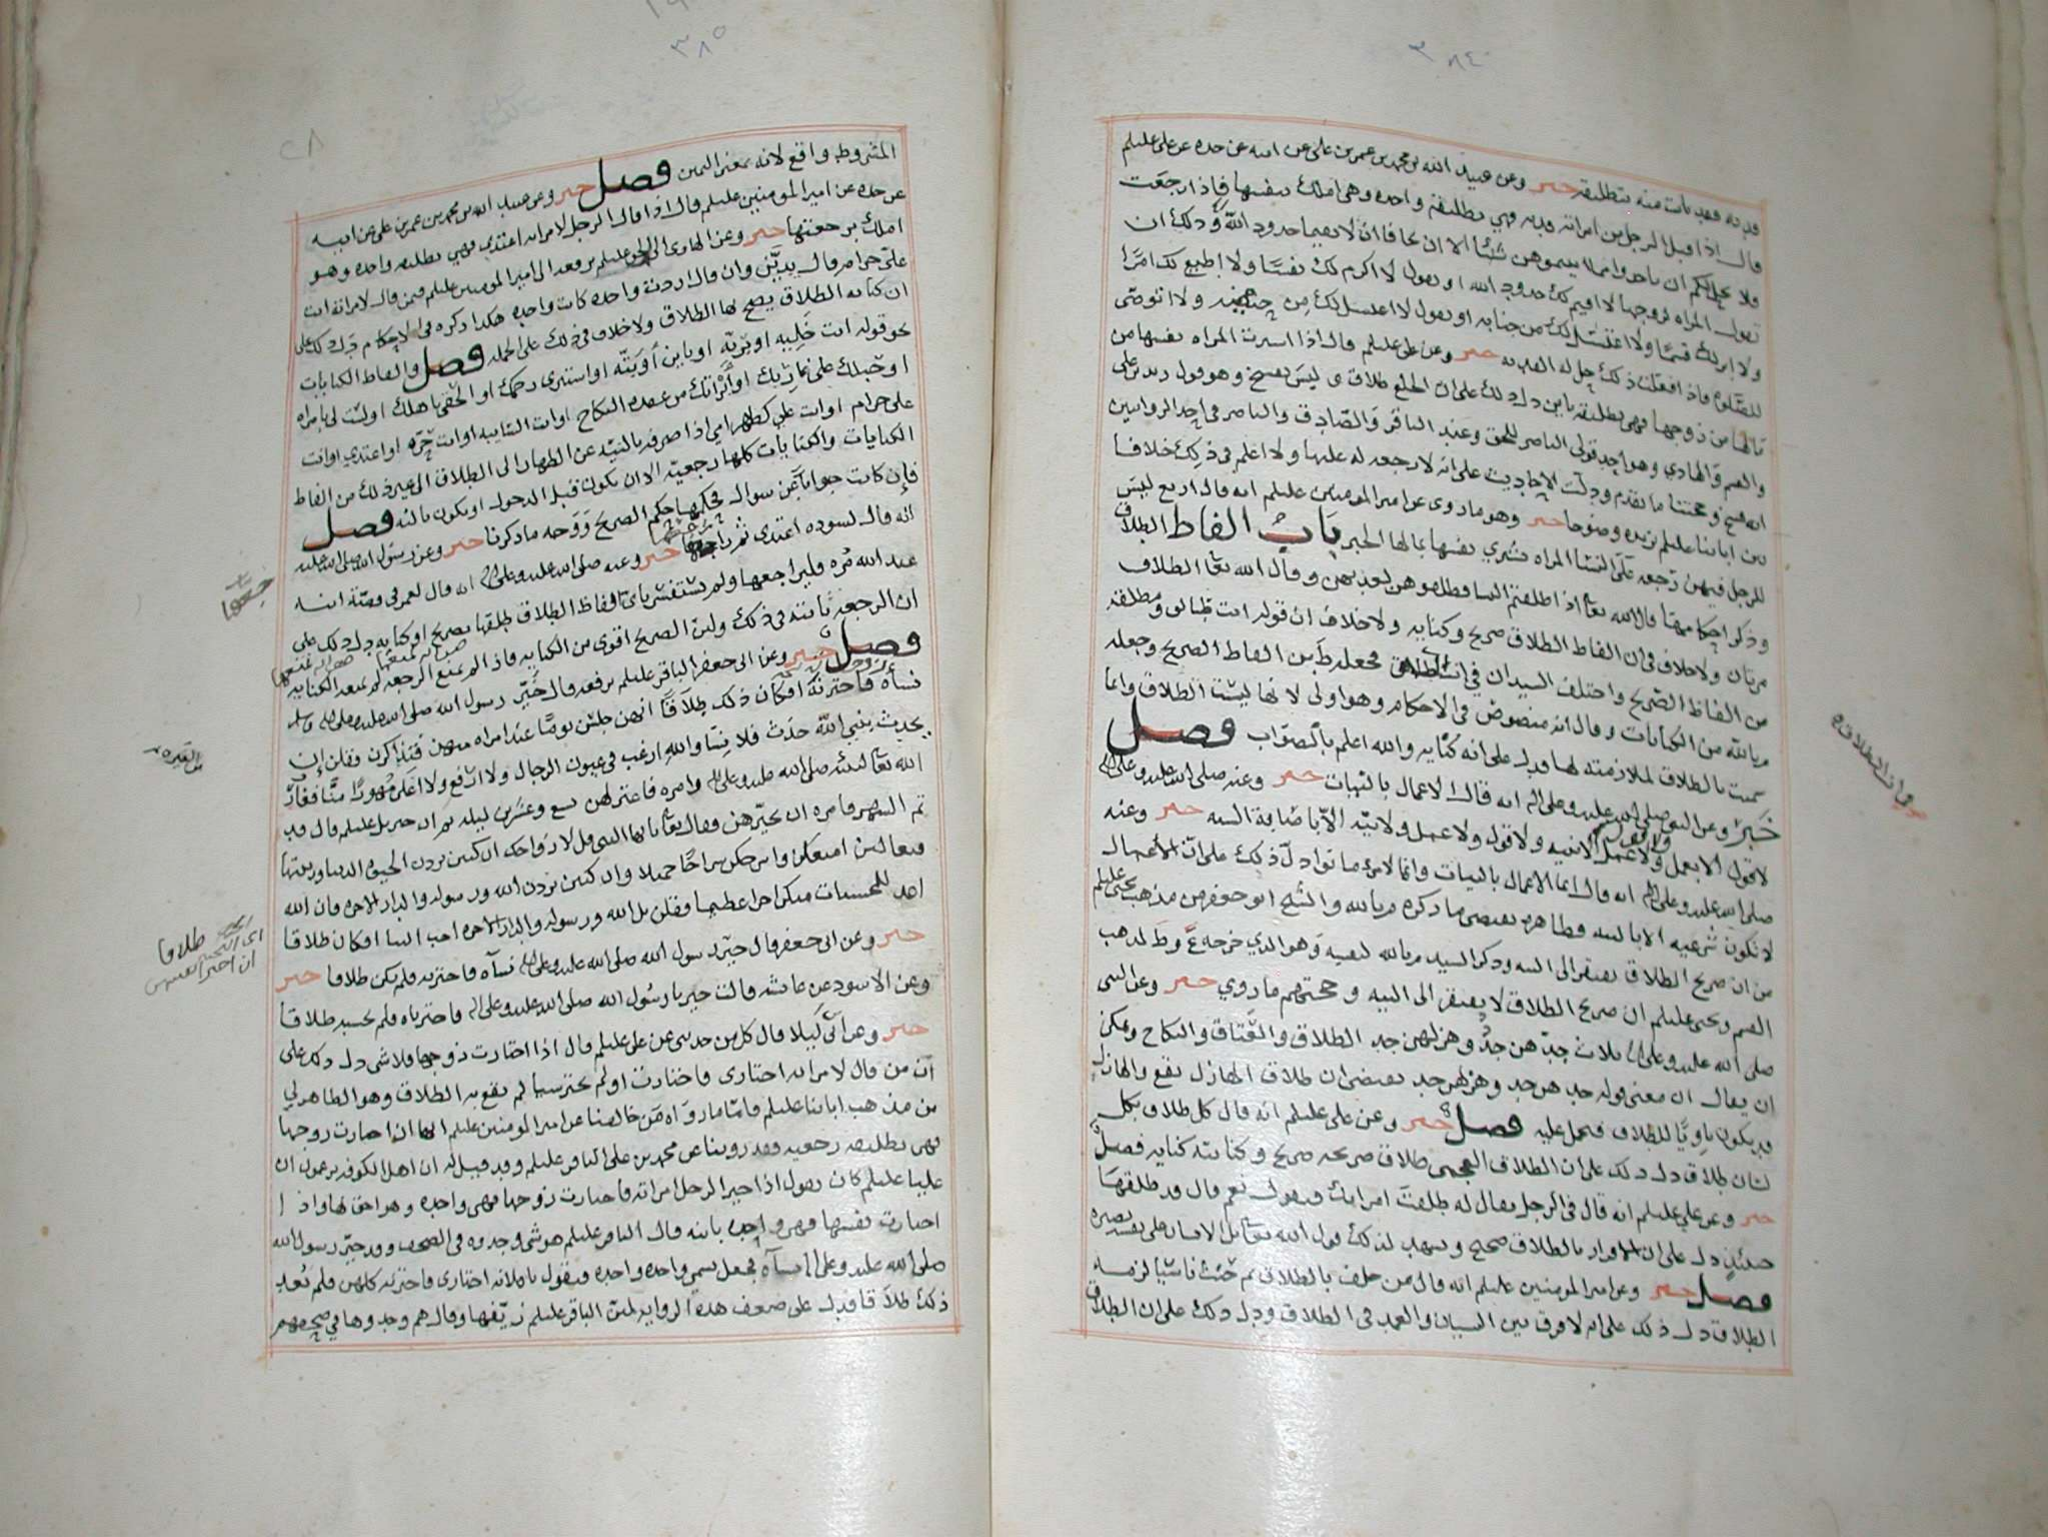 ٣٨٤
فديه فقد بانت منه بتطليقه خبر وعن عبيد الله بن محمد بن عمر بن علي عن ابيه عن جده عن علي عليلم
قال اذا قبل الرجل من امراته فديه فهي تطليقة واحده وهي املك بنفسها
ولا يحل لكم ان تاخذوا مما اتيتموهن شيئا الا ان يخافا ان لا يقيما حدود الله وذلك ان
تقول المراه لزوجها لا اقيم لك حدود الله او تقول لا اكرم لك نفسا ولا اطيع لك امرا
ولا ابر لك قسما ولا اغتسل لك من جنابه او تقول لا اغتسل لك من
للصلوه فاذا فعلت ذلك حل له الفديه خبر وعن علي عليلم قال اذا اشترت المراه نفسها من
زوجها فهي تطليقه باين دل ذلك على ان الخلع طلاق ليس بفسخ وهو قول زيد بن علي
والقسم والهادي وهو احد قولي الناصر للحق وعند الباقر والصادق والناصر في احد الروايتين
انه فسخ وحجتنا ما تقدم ودلت الاحاديث على انه لا رجعه له عليها ولا اعلم في ذلك خلافا
بين ابائنا عليلم خبر وهو ما روي عن امير المومنين عليلم انه قال اربع ليس
للرجل فيهن رجعه المراه تشتري نفسها بمالها الخبر باب الفاظ الطلاق
وذكر احكامها قال الله تعا اذا طلقتم النسا فطلقوهن لعدتهن وقال الله تعا الطلاق
مرتان ولا خلاف في ان الفاظ الطلاق صريح وكنايه ولا خلاف ان قوله انت طالق ومطلقه
من الفاظ الصريح واختلف السيدان في انت الطلاق فجعله ط من الفاظ الصريح وجعله
م بالله من الكنايات وقال انه منصوص في الاحكام وهو اولى لانها ليست الطلاق وانما
سميت بالطلاق لملازمته لها فدل على انه كنايه والله اعلم بالصواب فصل
خبر وعن النبي صلى الله عليه وعلى اله انه قال الاعمال بالنيات خبر وعنه صلى الله عليه وعلى اله
لا قول الا بعمل ولا عمل الا بنيه ولا قول ولا عمل ولا نيه الا باصابة السنه خبر وعنه
صلى الله عليه وعلى اله انه قال انما الاعمال بالنيات وانما لامرء ما نوا دل ذلك على ان الاعمال
لا تكون شرعيه الا بالنيه فظاهره يقتضي ما ذكره م بالله والشيخ ابو جعفر من مذهب يحيى عليلم
من ان صريح الطلاق يفتقر الى النيه وذكر السيد م بالله لنفسه وهو الذي خرجه ع وط لمذهب
القسم ويحيى عليلم ان صريح الطلاق لا يفتقر الى النيه وحجتهم ما روي خبر وعن النبي
صلى الله عليه وعلى اله ثلاث جدهن جد وهزلهن جد الطلاق والعتاق والنكاح ويمكن
ان يقال ان معنى قوله جدهن جد وهزلهن جد يقتضي ان طلاق الهازل يقع والهازل
قد يكون ناويا للطلاق فيحمل عليه فصل خبر وعن علي عليلم انه قال كل طلاق بكل
لسان طلاق دل ذلك على ان الطلاق العجمي طلاق صريحه صريح وكنايته كنايه فصل
خبر وعن علي عليلم انه قال في الرجل يقال له طلقت امراتك فيقول نعم قال قد طلقها
حينئذ دل على ان الاقرار بالطلاق صحيح ويشهد لذلك قول الله تعا بل الانسان على نفسه بصيره
فصل خبر وعن امير المومنين عليلم انه قال من حلف بالطلاق ثم حنث ناسيا لزمه
الطلاق دل ذلك على انه لا فرق بين النسيان والعمد في الطلاق ودل ذلك على ان الطلاق
٣٨٥
المشروط واقع لانه بمعنى اليمين فصل خبر وعن عبيد الله بن محمد بن عمر بن علي عن ابيه
عن جده عن امير المومنين عليلم قال اذا قال الرجل لامراته اعتدي فهي تطليقه واحده وهو
املك برجعتها خبر وعن الهادي الى الحق عليلم يرفعه الى امير المومنين عليلم فيمن قال لامراته انت
علي حرام قال يدين وان قال اردت واحده كانت واحده هكذا ذكره في الاحكام دل ذلك على
ان كنايه الطلاق يصح بها الطلاق ولا خلاف في ذلك على الجمله فصل والفاظ الكنايات
نحو قوله انت خليه او بريه او باين او بته او استبري رحمك او الحقي باهلك او لست لي بامراه
او حبلك على غاربك او ابراتك من عقده النكاح او انت السايبه او انت حره او اعتدي او انت
علي حرام او انت علي كظهر امي اذا صرفه بالنيه عن الظهار الى الطلاق الى غير ذلك من الفاظ
الكنايات والكنايات كلها رجعيه الا ان يكون قبل الدخول او يكون ثالثه فصل
فان كانت جوابا عن سوال فحكمها حكم الصريح ووجه ما ذكرنا خبر وعن رسول الله صلى الله عليه
انه قال لسوده اعتدي ثم راجعها خبر وعنه صلى الله عليه وعلى اله انه قال لعمر في قصة ابنه
عبد الله مره فليراجعها ولم يستفسر باي الفاظ الطلاق طلقها بصريح او كنايه دل ذلك على
ان الرجعه ثابته في ذلك ولان الصريح اقوى من الكنايه فاذا لم يمنع الرجعه لم تمنعه الكنايه
فصل خبر وعن ابي جعفر الباقر عليلم يرفعه قال خير رسول الله صلى الله عليه وعلى اله وسلم
نسآه فاخترنه افكان ذلك طلاقا انهن جلسن يوما عند امراه منهن فتذاكرن فقلن ان
يحدث بنبي الله حدث فلا نسا والله ارغب في عيون الرجال ولا ارفع ولا اغلى مهورا منا فغار
الله تعا لنبيه صلى الله عليه وعلى اله وامره فاعتزلهن تسع وعشرين ليله ثم ان جبريل عليلم قال قد
تم الشهر فامره ان يخيرهن وقال تعا يا ايها النبي قل لازواجك ان كنتن تردن الحيوة الدنيا وزينتها
فتعالين امتعكن واسرحكن سراحا جميلا وان كنتن تردن الله ورسوله والدار الاخره فان الله
اعد للمحسنات منكن اجرا عظيما فقلن بل الله ورسوله والدار الاخره احب الينا افكان طلاقا
خبر وعن ابي جعفر قال خير رسول الله صلى الله عليه وعلى اله نسآه فاخترنه فلم يكن طلاقا خبر
وعن الاسود عن عائشه قالت خيرنا رسول الله صلى الله عليه وعلى اله فاخترناه فلم يحسبه طلاقا
خبر وعن قال كل من حدثني عن علي عليلم قال اذا اختارت زوجها فلا شي دل ذلك على
ان من قال لامراته اختاري فاختارت او لم تختر شيا لم يقع به الطلاق وهو الظاهر لي
من مذهب ابائنا عليلم فاما ما رواه من خالفنا عن امير المومنين عليلم انها ان اختارت زوجها
فهي تطليقه رجعيه فقد روينا عن محمد بن علي الباقر عليلم وقد قيل له ان اهل الكوفه يزعمون ان
عليا عليلم كان يقول اذا خير الرجل امراته فاختارت زوجها فهي واحده وهو احق بها واذا
اختارت نفسها فهي واحده باينه قال الباقر عليلم هو شي وجدوه في الصحف وقد خير رسول الله
صلى الله عليه وعلى اله نسآه فجعل يسمي واحده واحده فيقول يا فلانه اختاري فاخترنه كلهن فلم يعد
ذلك طلاقا فدل على ضعف هذه الروايه لان الباقر عليلم زيفها وقال هم وجدوها في صحفهم